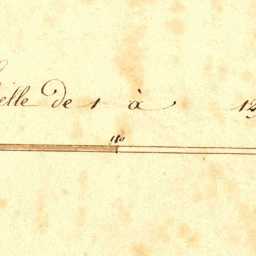 elle de 1 à 12
110